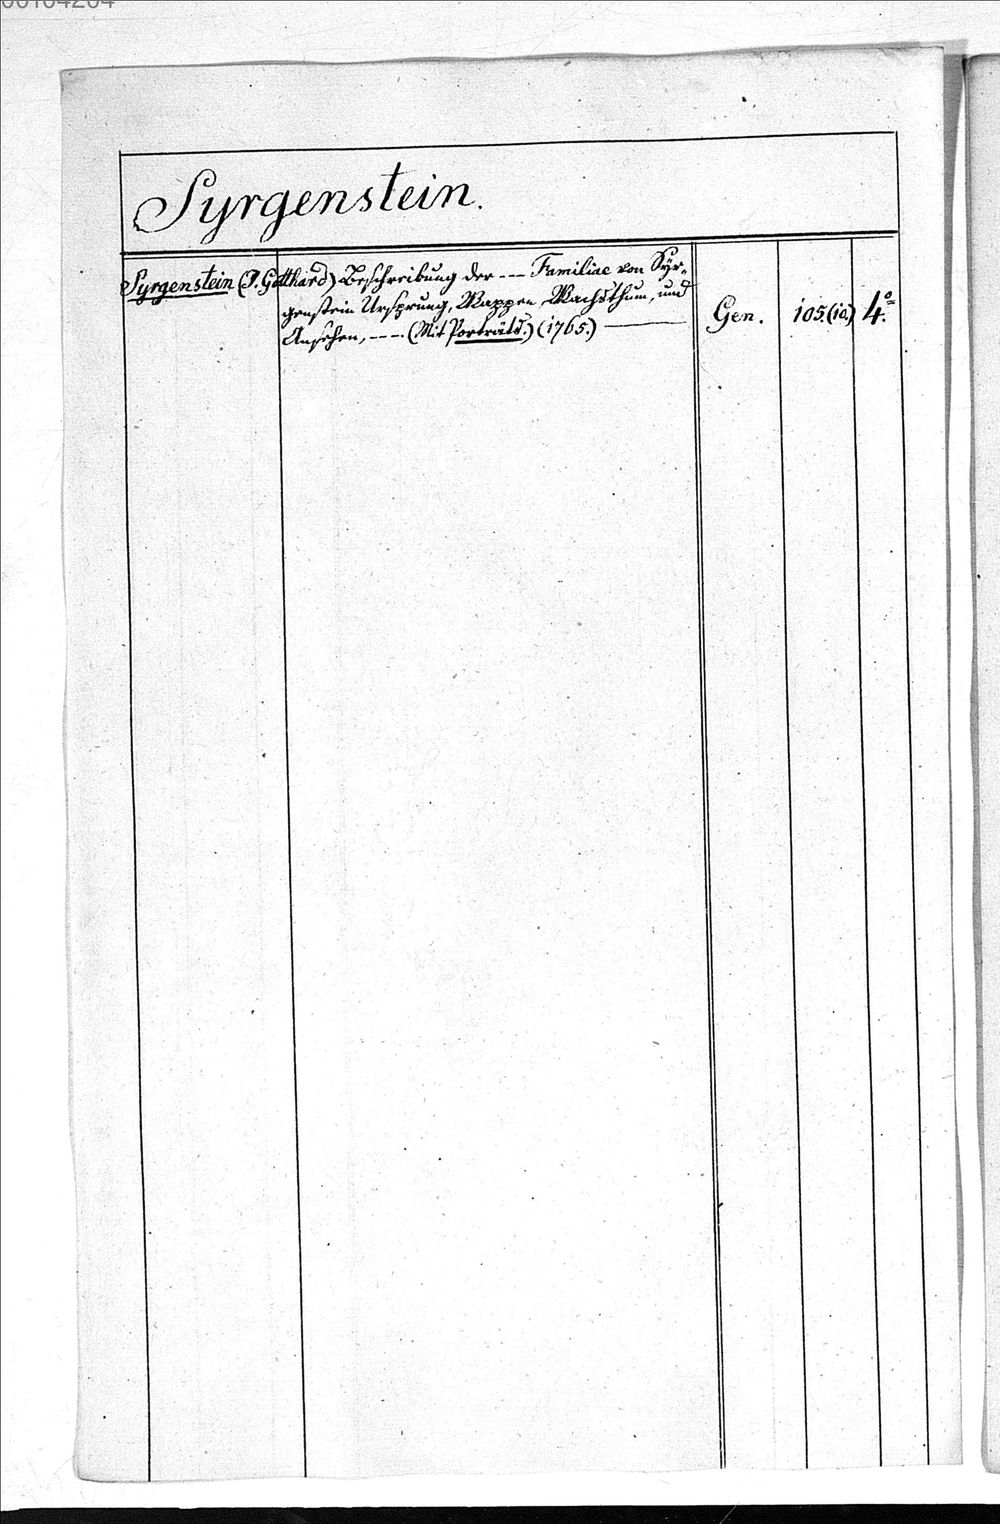 Syrgenstein.
Syrgenstein (J. Gotthard) Beschreibung der --- Familiae von Syr-
genstein Ursprung, Wappen Wachsthum, und
Ansehen, ---. (Mit Porträts.) (1765.) Gen. 105.(10.) 4.º